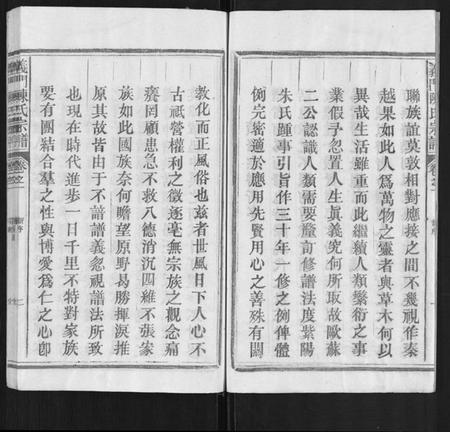 聯族誼莫敦相對應接之間不幾視作秦
越果如此人爲萬物之靈者與草木何以
異哉生活雖重而此繼續人類蕃衍之事
業假子忽置人生眞義究何所取故歐蘇
二公認識人類需要釐訂修譜法度紫陽
朱氏踵事引旨作三十年一修之例俾儘
例完密適於應用先賢用心之善殊有關
義門陳氏宗譜
卷之
教化而正風俗也兹者世風日下人心不
古祇營權利之徵逐毫無宗族之觀念痛
癢罔顧患急不救八德消沉四維不張家
族如此國族奈何瞻望原野曷勝揮淚推
原其故皆由于不諳譜義忽視譜法所致
也現在時代進步一日千里不特對家族
要有團結合羣之性與博愛爲仁之心卽
義門陳氏宗譜
卷之